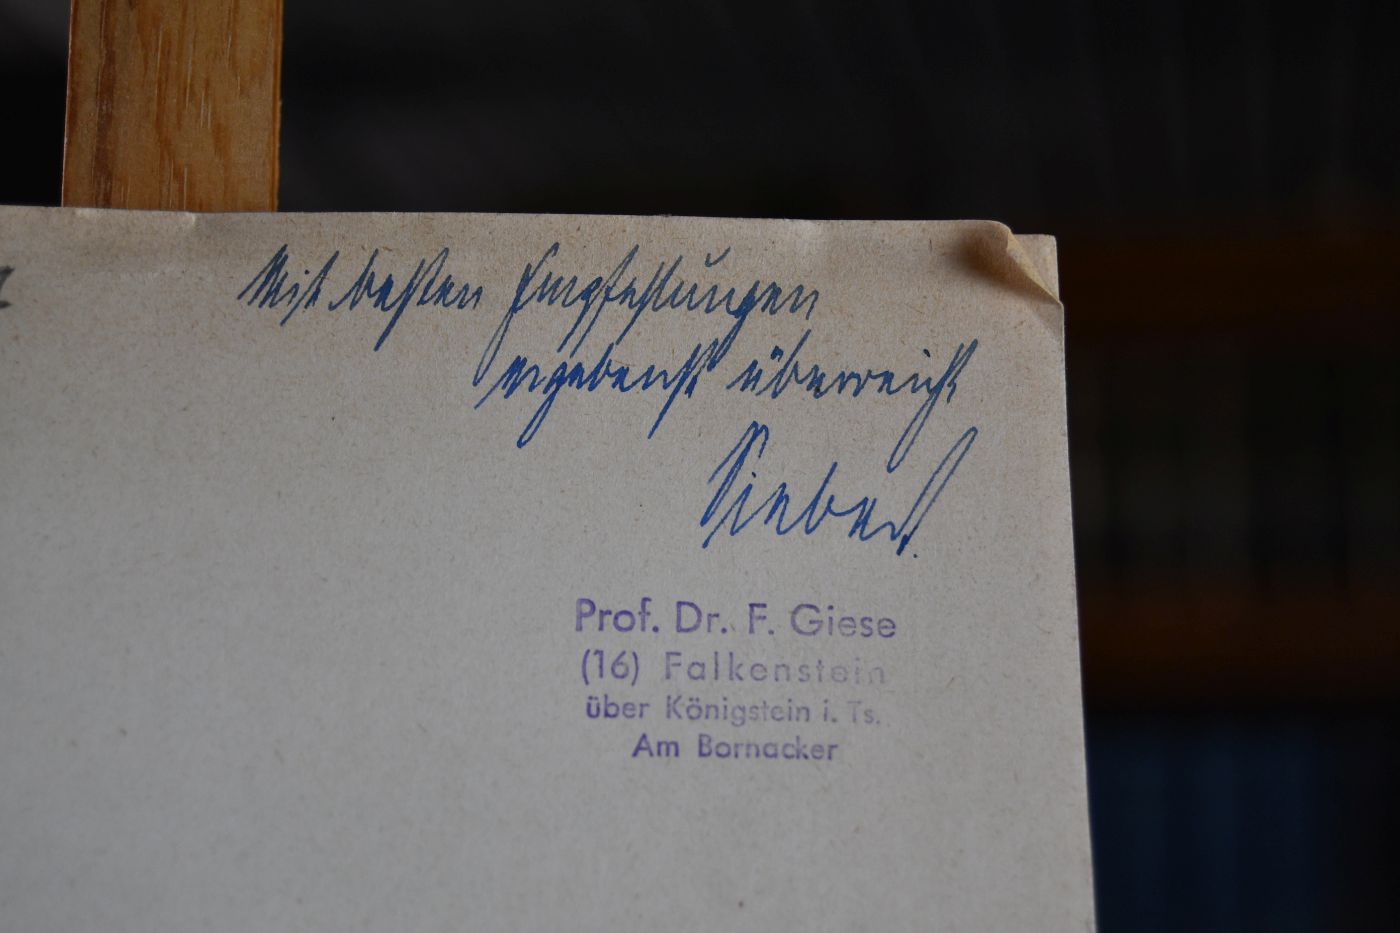 Mit besten Empfehlungen
ergebenst überreicht
Sieber.
Prof. Dr. F. Giese
(16) Falkenstein
über Königstein i. Ts.
Am Bornacker